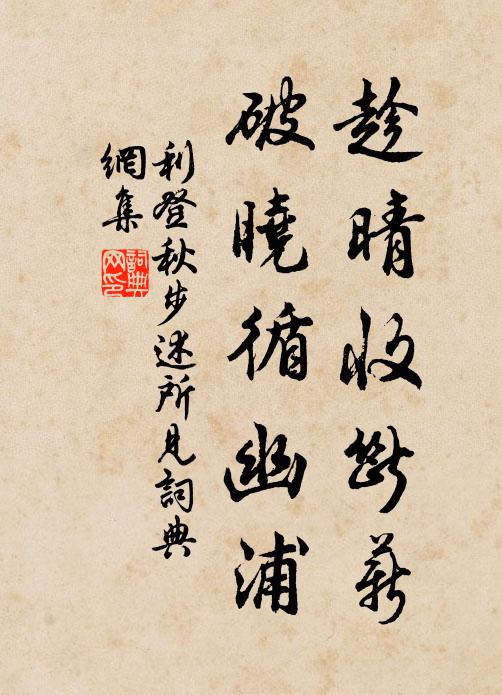 趁晴收斷薪
破曉循幽浦
利登秋步述所見詞典
網集
詞典
网印